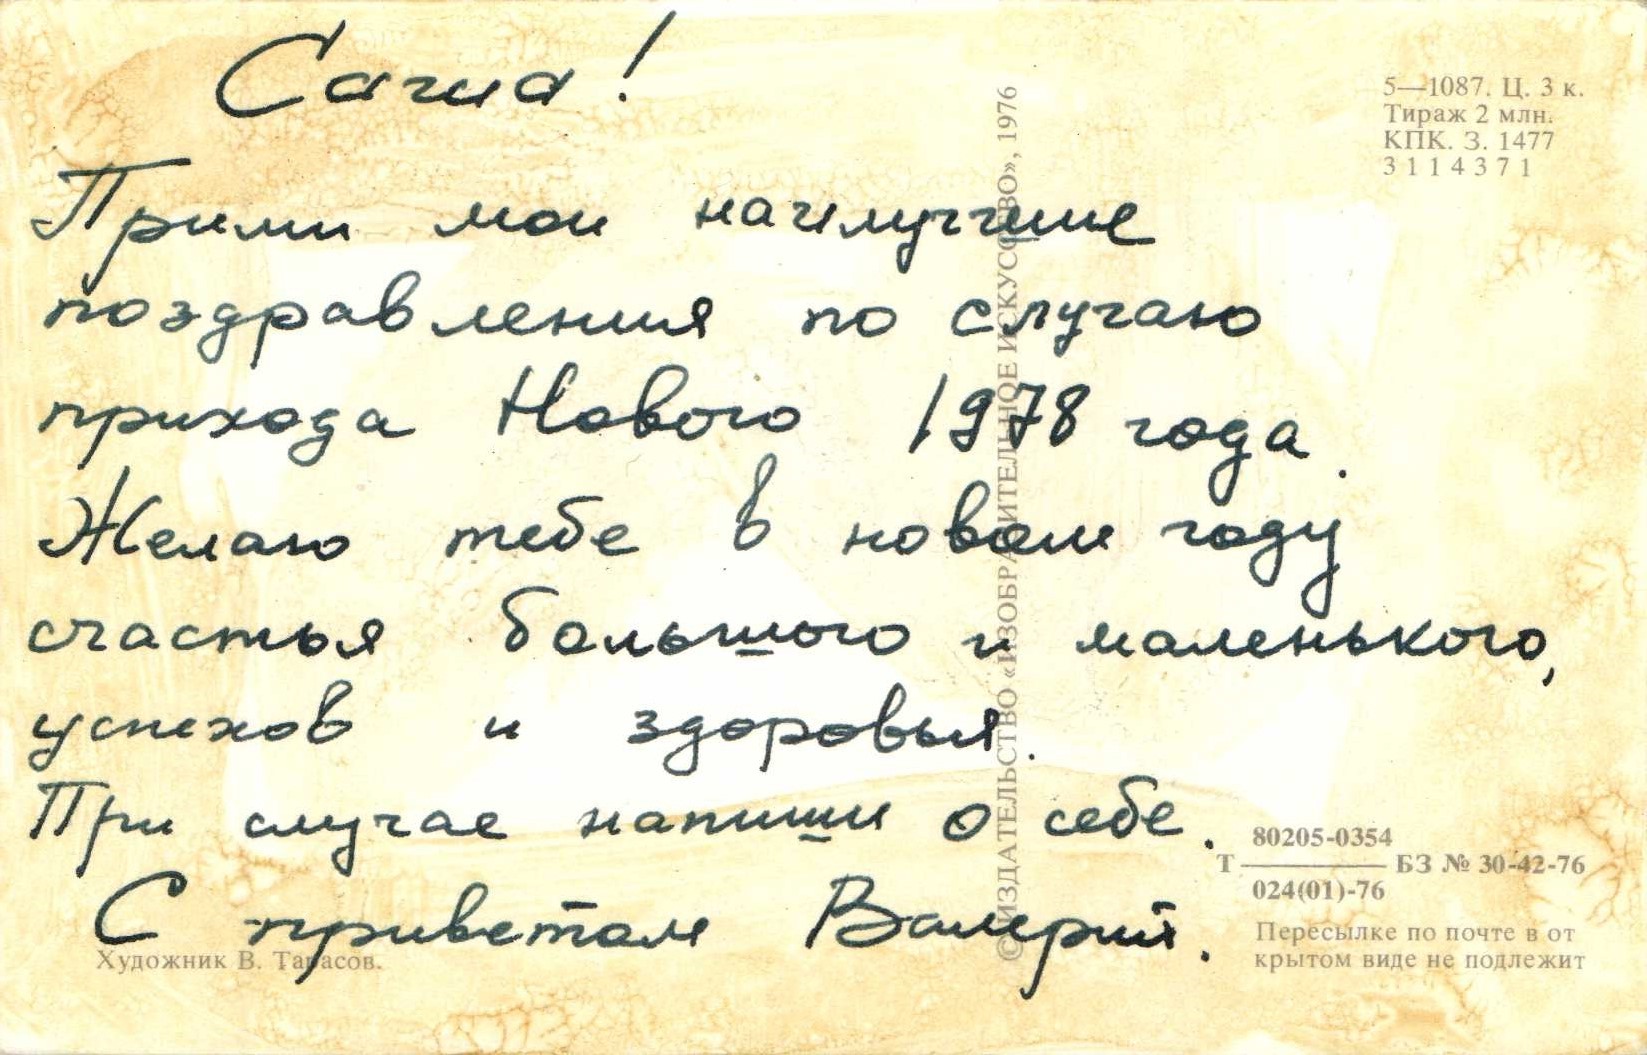 Саша!
Прими мои наилучшие
поздравления по случаю
прихода Нового 1978 года.
Желаю тебе в новом году
счастья большого и маленького,
успехов и здоровья.
При случае напиши о себе.
С приветом Валерий.
Художник В. Тарасов.
© ИЗДАТЕЛЬСТВО «ИЗОБРАЗИТЕЛЬНОЕ ИСКУССТВО», 1976
5—1087. Ц. 3 к.
Тираж 2 млн.
КПК. З. 1477
3114371
80205-0354
Т ——— БЗ № 30-42-76
024(01)-76
Пересылке по почте в от
крытом виде не подлежит